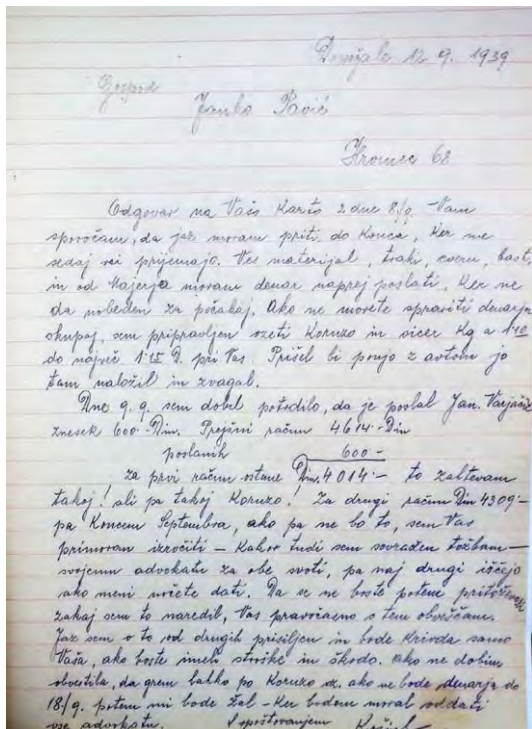 Domžale 12. 9. 1939
Gospod
Janko Pavić
Hromec 68
Odgovor na Vašo Karto z dne 8/9. Vam
sporočam, da jaz moram priti do Konca, Ker me
sedaj vsi prijemajo. Ves materijal, traki, cvern, bast,
in od Majerja moram denar naprej poslati, Ker ne
da nobeden za počakaj, Ako ne morete spraviti denarja
skupaj, sem pripravljen vzeti Koruzo in sicer Kg a 1·40
do največ 1·50 D. pri Vas. Prišel bi ponjo z avtom jo
tam naložil in zvagal.
Dne 9. 9. sem dobil potrdilo, da je poslal Jan. Varjačić
znesek 600·Din. Prejšni račun 4614·Din
poslanih 600·-
za prvi račun ostane Din. 4014·- to zahtevam
takoj! ali pa takoj Koruzo! Za drugi račun Din 4309·-
pa Koncem Septembra, ako pa ne bo to, sem Vas
primoran izročiti - Kakor tudi sem sovražen tožbam -
svojemu advokatu za obe svoti, pa naj drugi iščejo
ako meni nočete dati. Da se ne boste potem pritoževali
zakaj sem to naredil, Vas pravočasno s tem obveščam.
Jaz sem v to od drugih prisiljen in bode Krivda samo
Vaša, ako boste imeli stroške in škodo. Ako ne dobim
obvestila, da grem lahko po Koruzo oz. ako ne bode denarja do
18/9. potem mi bode žal - Ker bodem moral oddati
vse advokatu. S spoštovanjem